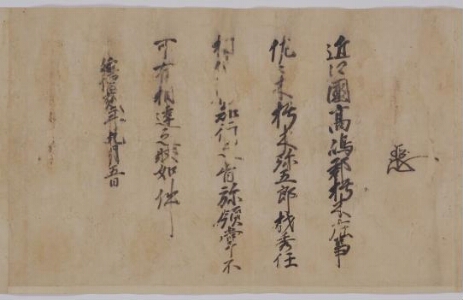 近江國高嶋郡朽木庄事
佐々木朽木弥五郎材秀任
相傳知行之旨弥領掌不
可有相違之状如件
年九月五日